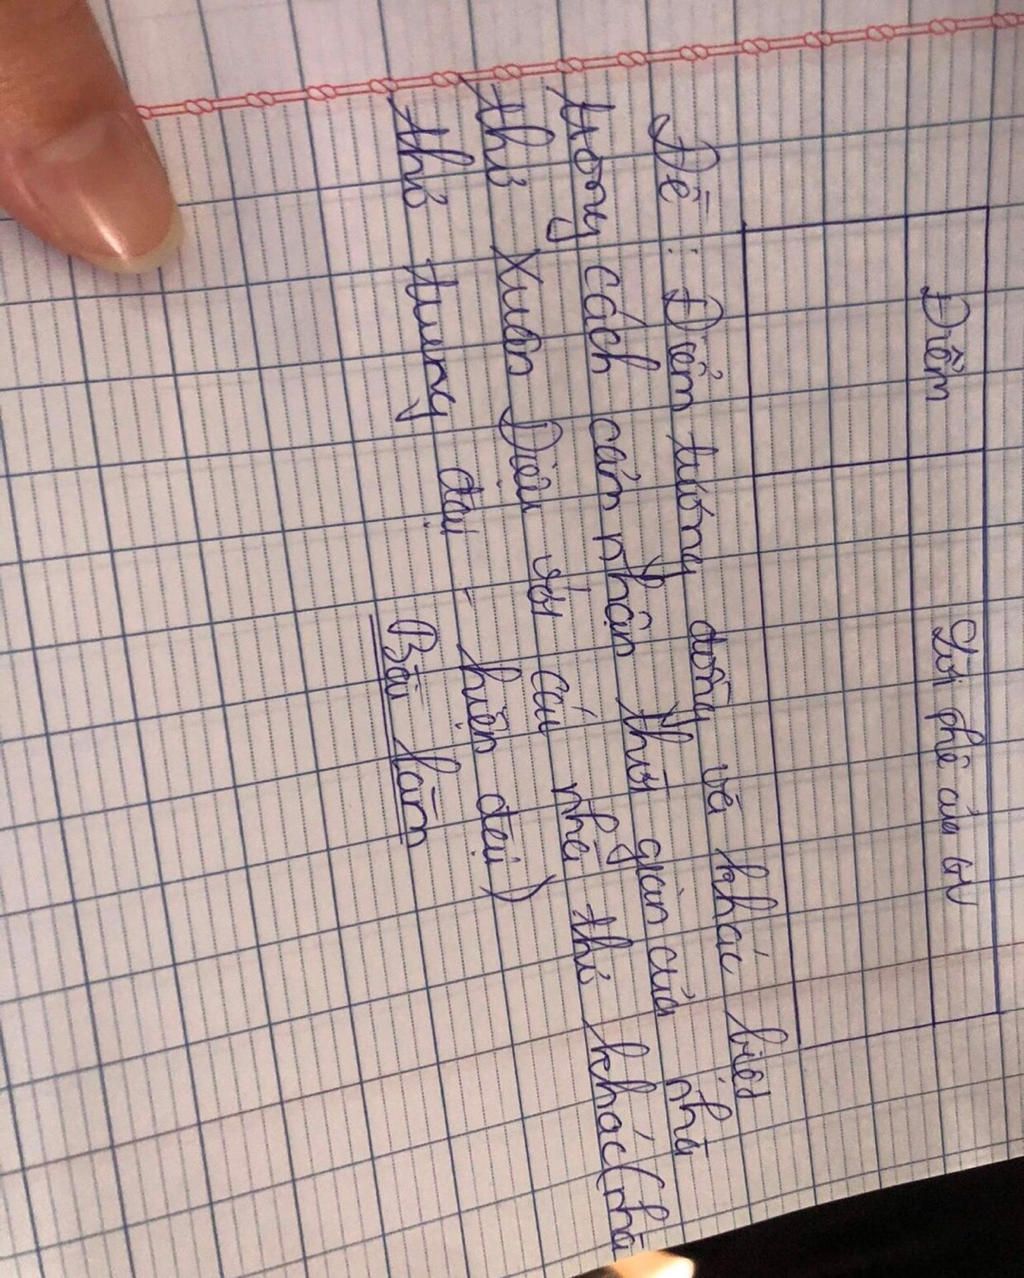 Điểm
Lời phê của GV
Đề : Điểm tương đồng và khác biệt
trong cách cảm nhận thời gian của nhà
thơ Xuân Diệu với các nhà thơ khác (nhà
thơ trung đại - hiện đại)
Bài làm